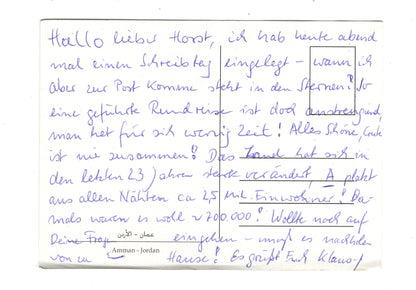 Hallo lieber Horst, ich hab heute abend
mal einen Schreibtag eingelegt - wann ich
aber zur Post komme steht in den Sternen! So
eine geführte Rundreise ist doch anstrengend,
man hat für sich wenig Zeit! Alles Schöne,
ist nie zusammen! Das Land hat sich in
den letzten 23 Jahren stark verändert, A platzt
aus allen Nähten ca 2,5 Mil. Einwohner! Da-
mals waren es wohl 700.000! Wollte noch auf
Deine Frage eingehen - muß es nachholen
von zu Hause! Es grüßt Euch Klaus
عمان - الأردن
Amman - Jordan